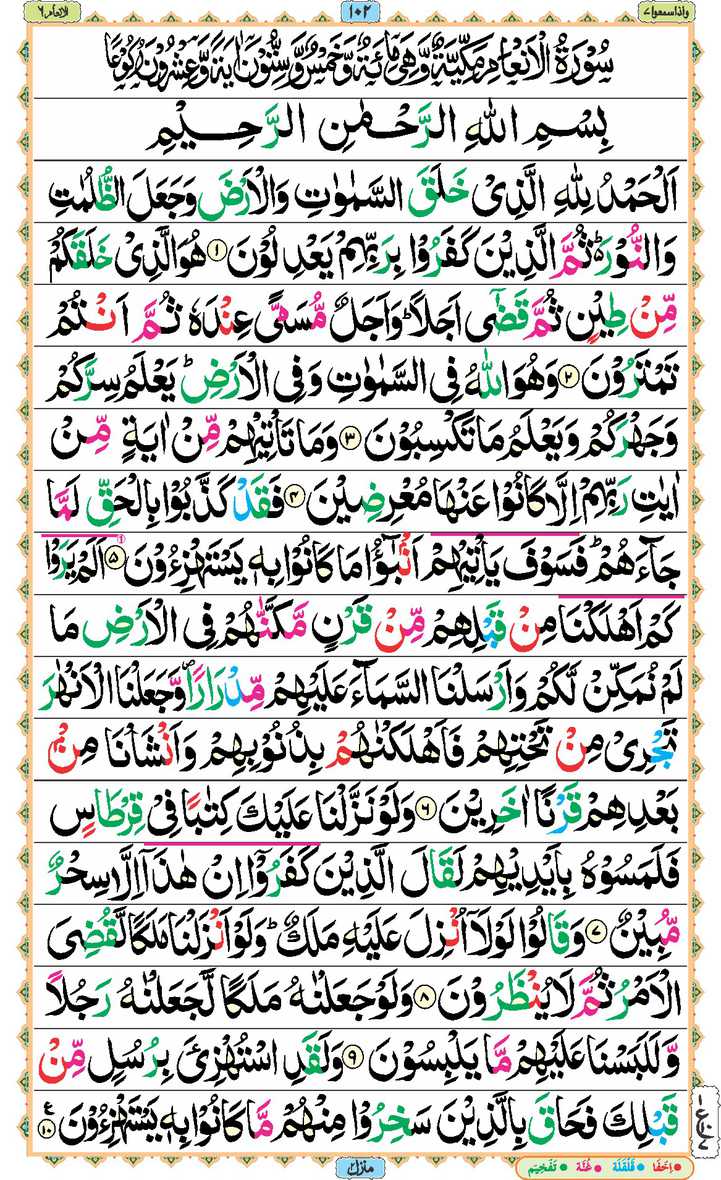 واذا سمعوا ٧ ١٠٢ الانعام ٦
سُوْرَةُ الْاَنْعَامِ مَكِّيَّةٌ وَّهِىَ مِائَةٌ وَّخَمْسٌ وَّسِتُّوْنَ اٰيَةً وَّعِشْرُوْنَ رُكُوْعًا
بِسْمِ اللّٰهِ الرَّحْمٰنِ الرَّحِيْمِ
اَلْحَمْدُ لِلّٰهِ الَّذِىْ خَلَقَ السَّمٰوٰتِ وَالْاَرْضَ وَجَعَلَ الظُّلُمٰتِ
وَالنُّوْرَ ؕ ثُمَّ الَّذِيْنَ كَفَرُوْا بِرَبِّهِمْ يَعْدِلُوْنَ ۝۱ هُوَ الَّذِىْ خَلَقَكُمْ
مِّنْ طِيْنٍ ثُمَّ قَضٰٓى اَجَلًا ؕ وَاَجَلٌ مُّسَمًّى عِنْدَهٗ ثُمَّ اَنْتُمْ
تَمْتَرُوْنَ ۝۲ وَهُوَ اللّٰهُ فِى السَّمٰوٰتِ وَفِى الْاَرْضِ ؕ يَعْلَمُ سِرَّكُمْ
وَجَهْرَكُمْ وَيَعْلَمُ مَا تَكْسِبُوْنَ ۝۳ وَمَا تَاْتِيْهِمْ مِّنْ اٰيَةٍ مِّنْ
اٰيٰتِ رَبِّهِمْ اِلَّا كَانُوْا عَنْهَا مُعْرِضِيْنَ ۝۴ فَقَدْ كَذَّبُوْا بِالْحَقِّ لَمَّا
جَآءَهُمْ ؕ فَسَوْفَ يَاْتِيْهِمْ اَنْۢبٰٓؤُا مَا كَانُوْا بِهٖ يَسْتَهْزِءُوْنَ ۝۵ اَلَمْ يَرَوْا
كَمْ اَهْلَكْنَا مِنْ قَبْلِهِمْ مِّنْ قَرْنٍ مَّكَّنّٰهُمْ فِى الْاَرْضِ مَا
لَمْ نُمَكِّنْ لَّكُمْ وَاَرْسَلْنَا السَّمَآءَ عَلَيْهِمْ مِّدْرَارًا ۪ وَّجَعَلْنَا الْاَنْهٰرَ
تَجْرِىْ مِنْ تَحْتِهِمْ فَاَهْلَكْنٰهُمْ بِذُنُوْبِهِمْ وَاَنْشَاْنَا مِنْۢ
بَعْدِهِمْ قَرْنًا اٰخَرِيْنَ ۝۶ وَلَوْ نَزَّلْنَا عَلَيْكَ كِتٰبًا فِىْ قِرْطَاسٍ
فَلَمَسُوْهُ بِاَيْدِيْهِمْ لَقَالَ الَّذِيْنَ كَفَرُوْٓا اِنْ هٰذَآ اِلَّا سِحْرٌ
مُّبِيْنٌ ۝۷ وَقَالُوْا لَوْلَآ اُنْزِلَ عَلَيْهِ مَلَكٌ ؕ وَلَوْ اَنْزَلْنَا مَلَكًا لَّقُضِىَ
الْاَمْرُ ثُمَّ لَا يُنْظَرُوْنَ ۝۸ وَلَوْ جَعَلْنٰهُ مَلَكًا لَّجَعَلْنٰهُ رَجُلًا
وَّلَلَبَسْنَا عَلَيْهِمْ مَّا يَلْبِسُوْنَ ۝۹ وَلَقَدِ اسْتُهْزِئَ بِرُسُلٍ مِّنْ
قَبْلِكَ فَحَاقَ بِالَّذِيْنَ سَخِرُوْا مِنْهُمْ مَّا كَانُوْا بِهٖ يَسْتَهْزِءُوْنَ ۝۱۰ ع
منزل ٢ • اِخْفَا • قَلْقَلَة • غُنَّة • تَفْخِيْم